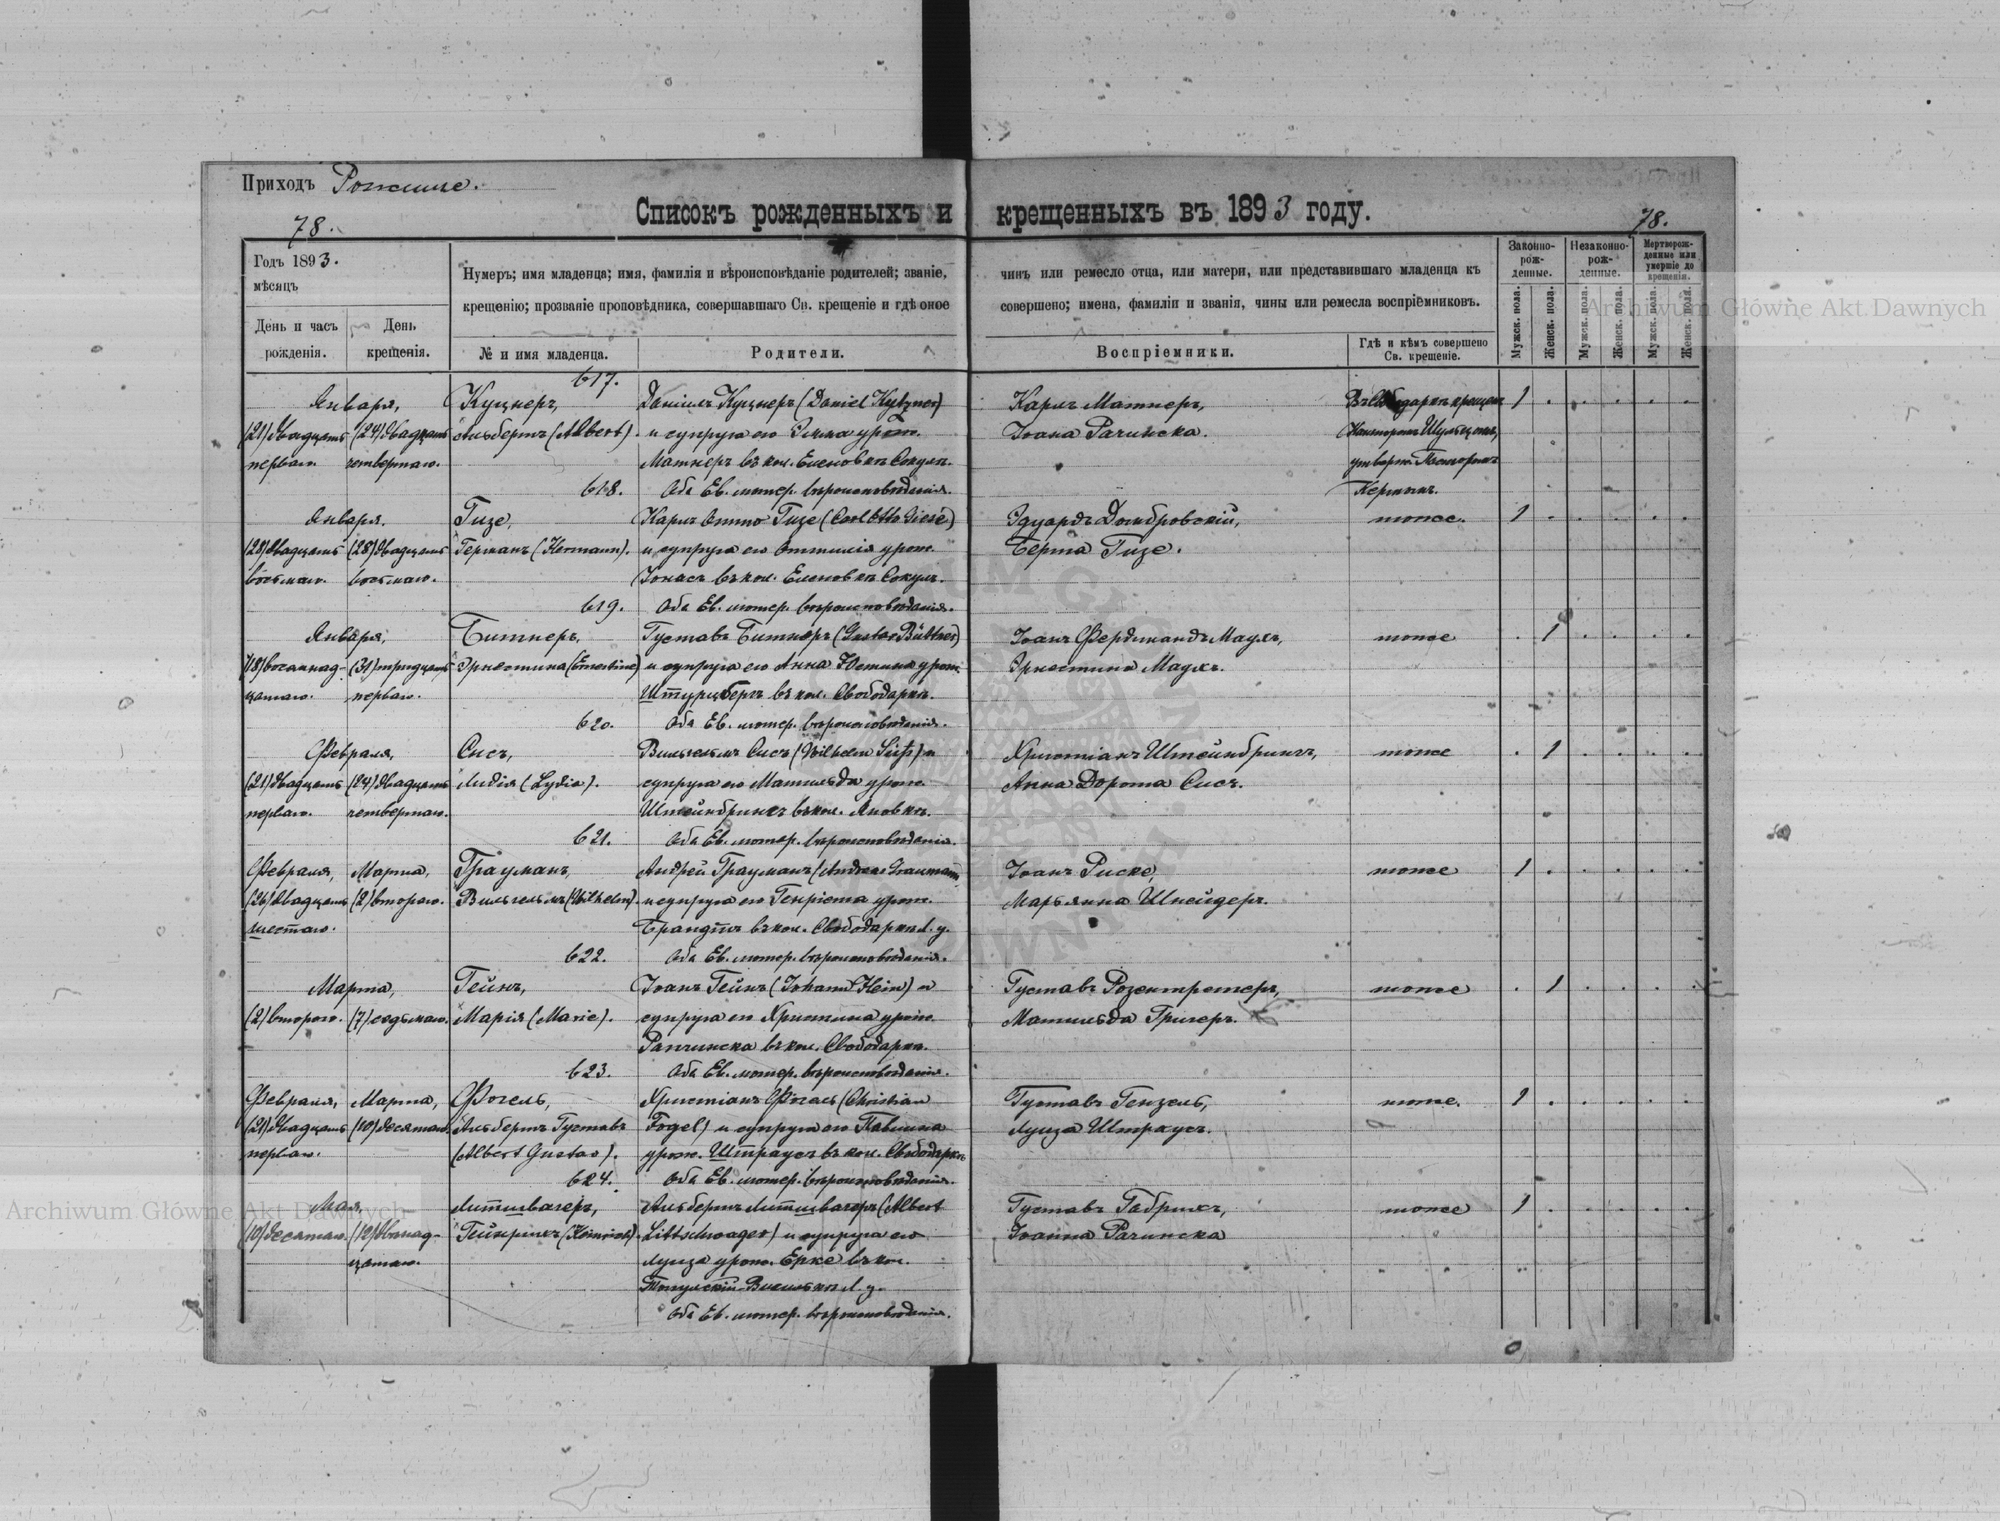 Приходъ Рожище.
Списокъ рожденныхъ и крещенныхъ въ 1893 году.
78.
78.
Годъ 1893.
мѣсяцъ
День и часъ рожденія.
День крещенія.
Нумеръ; имя младенца; имя, фамилія и вѣроисповѣданіе родителей; званіе, чинъ или ремесло отца, или матери, или представившаго младенца къ
крещенію; прозваніе проповѣдника, совершавшаго Св. крещеніе и гдѣ оное совершено; имена, фамиліи и званія, чины или ремесла воспріемниковъ.
№ и имя младенца.
Родители.
Воспріемники.
Гдѣ и кѣмъ совершено Св. крещеніе.
Законно-рож-денные.
Незаконно-рож-денные.
Мертворож-денные или умершіе до крещенія.
Мужск. пола.
Женск. пола.
Мужск. пола.
Женск. пола.
Мужск. пола.
Женск. пола.
617.
Января, Куцнеръ, Даніилъ Куцнеръ (Daniel Kutzner) Карлъ Матнеръ, 1
(21) двадцать (24) двадцать Альбертъ (Albert). и супруга его Эмма урож. Іоана Рачинска.
перваго. четвертаго. Матнеръ въ кол. Еленовкѣ Сокул. утверж. Пасторомъ
618. Оба Ев. лютер. вѣроисповѣданія. Кернъ.
Января. Гизе, Карлъ Отто Гизе (Carl Otto Giese) Эдуардъ Домбровскій, тоже. 1
(28) двадцать (28) двадцать Германъ (Hermann). и супруга его Оттилія урож. Берта Гизе.
восьмаго. восьмаго. Іонасъ въ кол. Еленовкѣ Сокул.
619. Оба Ев. лютер. вѣроисповѣданія.
Января, Битнеръ, Густавъ Битнеръ (Gustav Büttner) Іоанъ Фердинандъ Маухъ, тоже 1
(18) восемнад- (31) тридцать Эрнестина (Ernestine) и супруга его Анна Юстина урож. Эрнестина Маухъ.
цатаго. перваго. Штурцбергъ въ кол. Свободаркѣ.
620. Оба Ев. лютер. вѣроисповѣданія.
Февраля, Сисъ, Вильгельмъ Сисъ (Wilhelm Süß) и Христіанъ Штейнбринкъ, тоже 1
(21) двадцать (24) двадцать Лидія (Lydia). супруга его Матильда урож. Анна Дорота Сисъ.
перваго. четвертаго. Штейнбринкъ въ кол. Яновкѣ.
621. Оба Ев. лютер. вѣроисповѣданія.
Февраля, Марта, Грауманъ, Андрей Грауманъ (Andreas Graumann) Іоанъ Риске, тоже 1
(26) двадцать (2) втораго. Вильгельмъ (Wilhelm). и супруга его Генріета урож. Марьянна Шнейдеръ.
шестаго. Брандтъ въ кол. Свободаркѣ Л. у.
622. Оба Ев. лютер. вѣроисповѣданія.
Марта, Гейнъ, Іоанъ Гейнъ (Johann Hein) и Густавъ Розентретеръ, тоже 1
(2) втораго. (7) седьмаго. Марія (Marie). супруга его Христина урож. Матильда Григеръ.
Рапчинска въ кол. Свободаркѣ.
623. Оба Ев. лютер. вѣроисповѣданія.
Февраля, Марта, Фогель, Христіанъ Фогель (Christian Густавъ Гензель, тоже. 1
(21) двадцать (10) десятаго. Альбертъ Густавъ Fogel) и супруга его Павлина Луиза Штраусъ.
перваго. (Albert Gustav). урож. Штраусъ въ кол. Свободаркѣ
624. Оба Ев. лютер. вѣроисповѣданія.
Мая, Литшвагеръ, Альбертъ Литшвагеръ (Albert Густавъ Габрихъ, тоже 1
(10) десятаго. (12) двѣнад- Гейнрихъ (Heinrich). Littschwager) и супруга его Іоанна Рачинска
цатаго. Луиза урож. Ерке въ кол.
Л. у.
Оба Ев. лютер. вѣроисповѣданія.
Archiwum Główne Akt Dawnych
Archiwum Główne Akt Dawnych